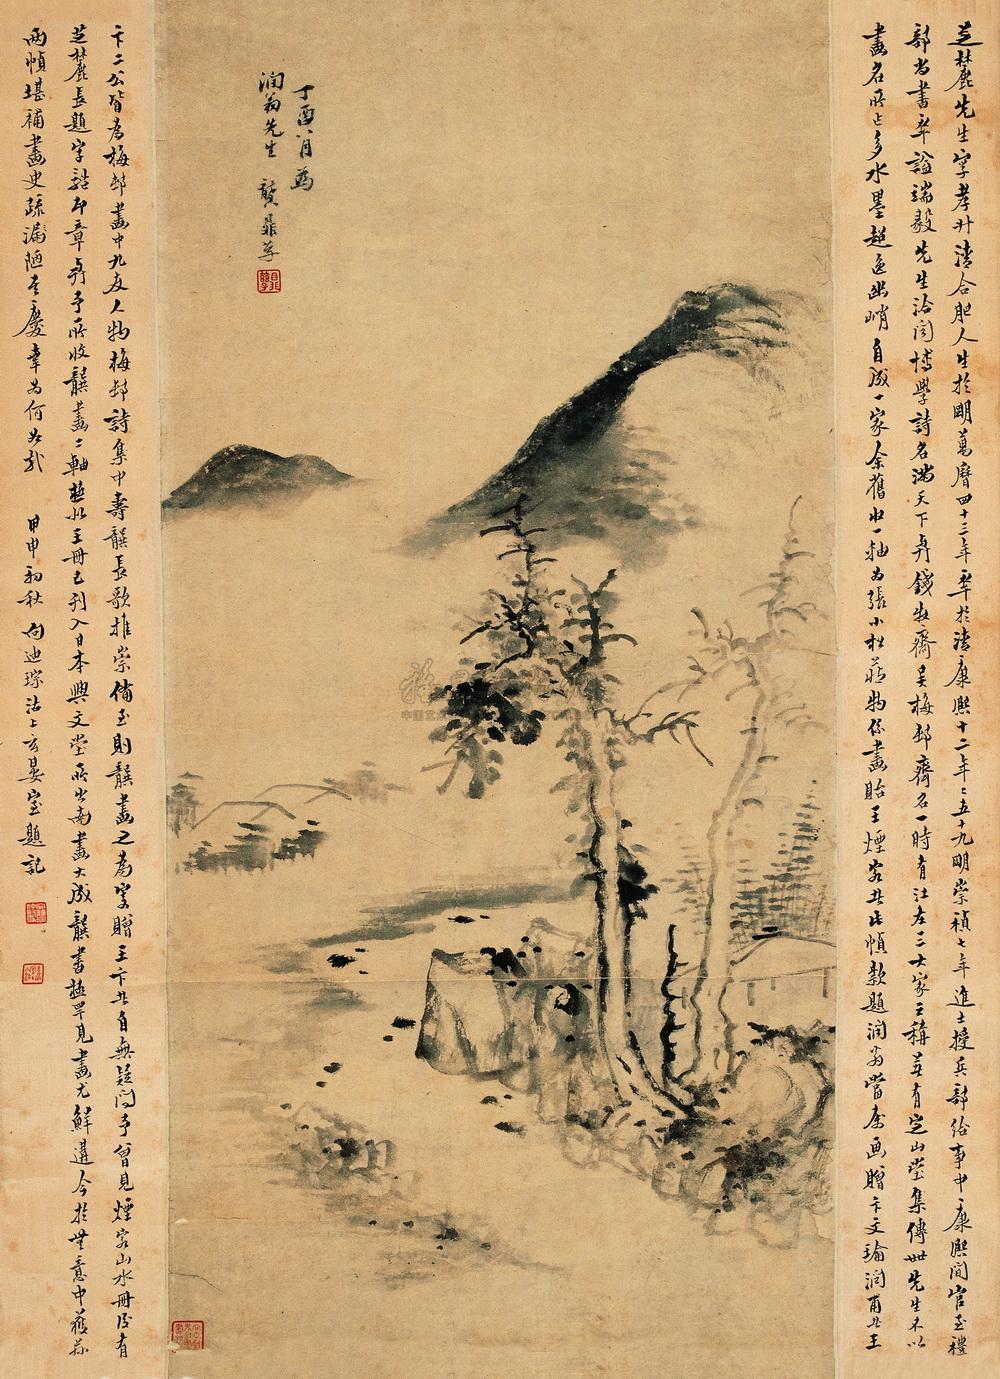 芝麓先生字孝升清合肥人生於明萬曆四十三年卒於清康熙十二年年五十九明崇禎七年進士授兵部給事中康熙間官至禮
部尚書卒諡端毅先生洽聞博學詩名滿天下與錢牧齋吳梅邨齊名一時有江左三大家之稱著有定山堂集傳世先生不以
畫名所作多水墨超逸幽峭自成一家余舊收一軸為張小松藏物係畫貽王煙客者此幀款題潤翁當為畫贈卞文瑜潤甫者王
丁酉八月為
潤翁先生 龔鼎孳
卞二公皆為梅邨畫中九友人物梅邨詩集中壽龔長歌推崇備至則龔畫之為案贈王卞者自無疑問予曾見煙客山水冊後有
芝麓長題字訖印章與予所收龔畫二軸極似王冊已刊入日本興文堂所出南畫大成龔書極罕見畫尤鮮遘今於無意中獲茲
兩幀堪補畫史疏漏 慶幸為何如哉 甲申初秋 向迪琮沽上玄晏室題記